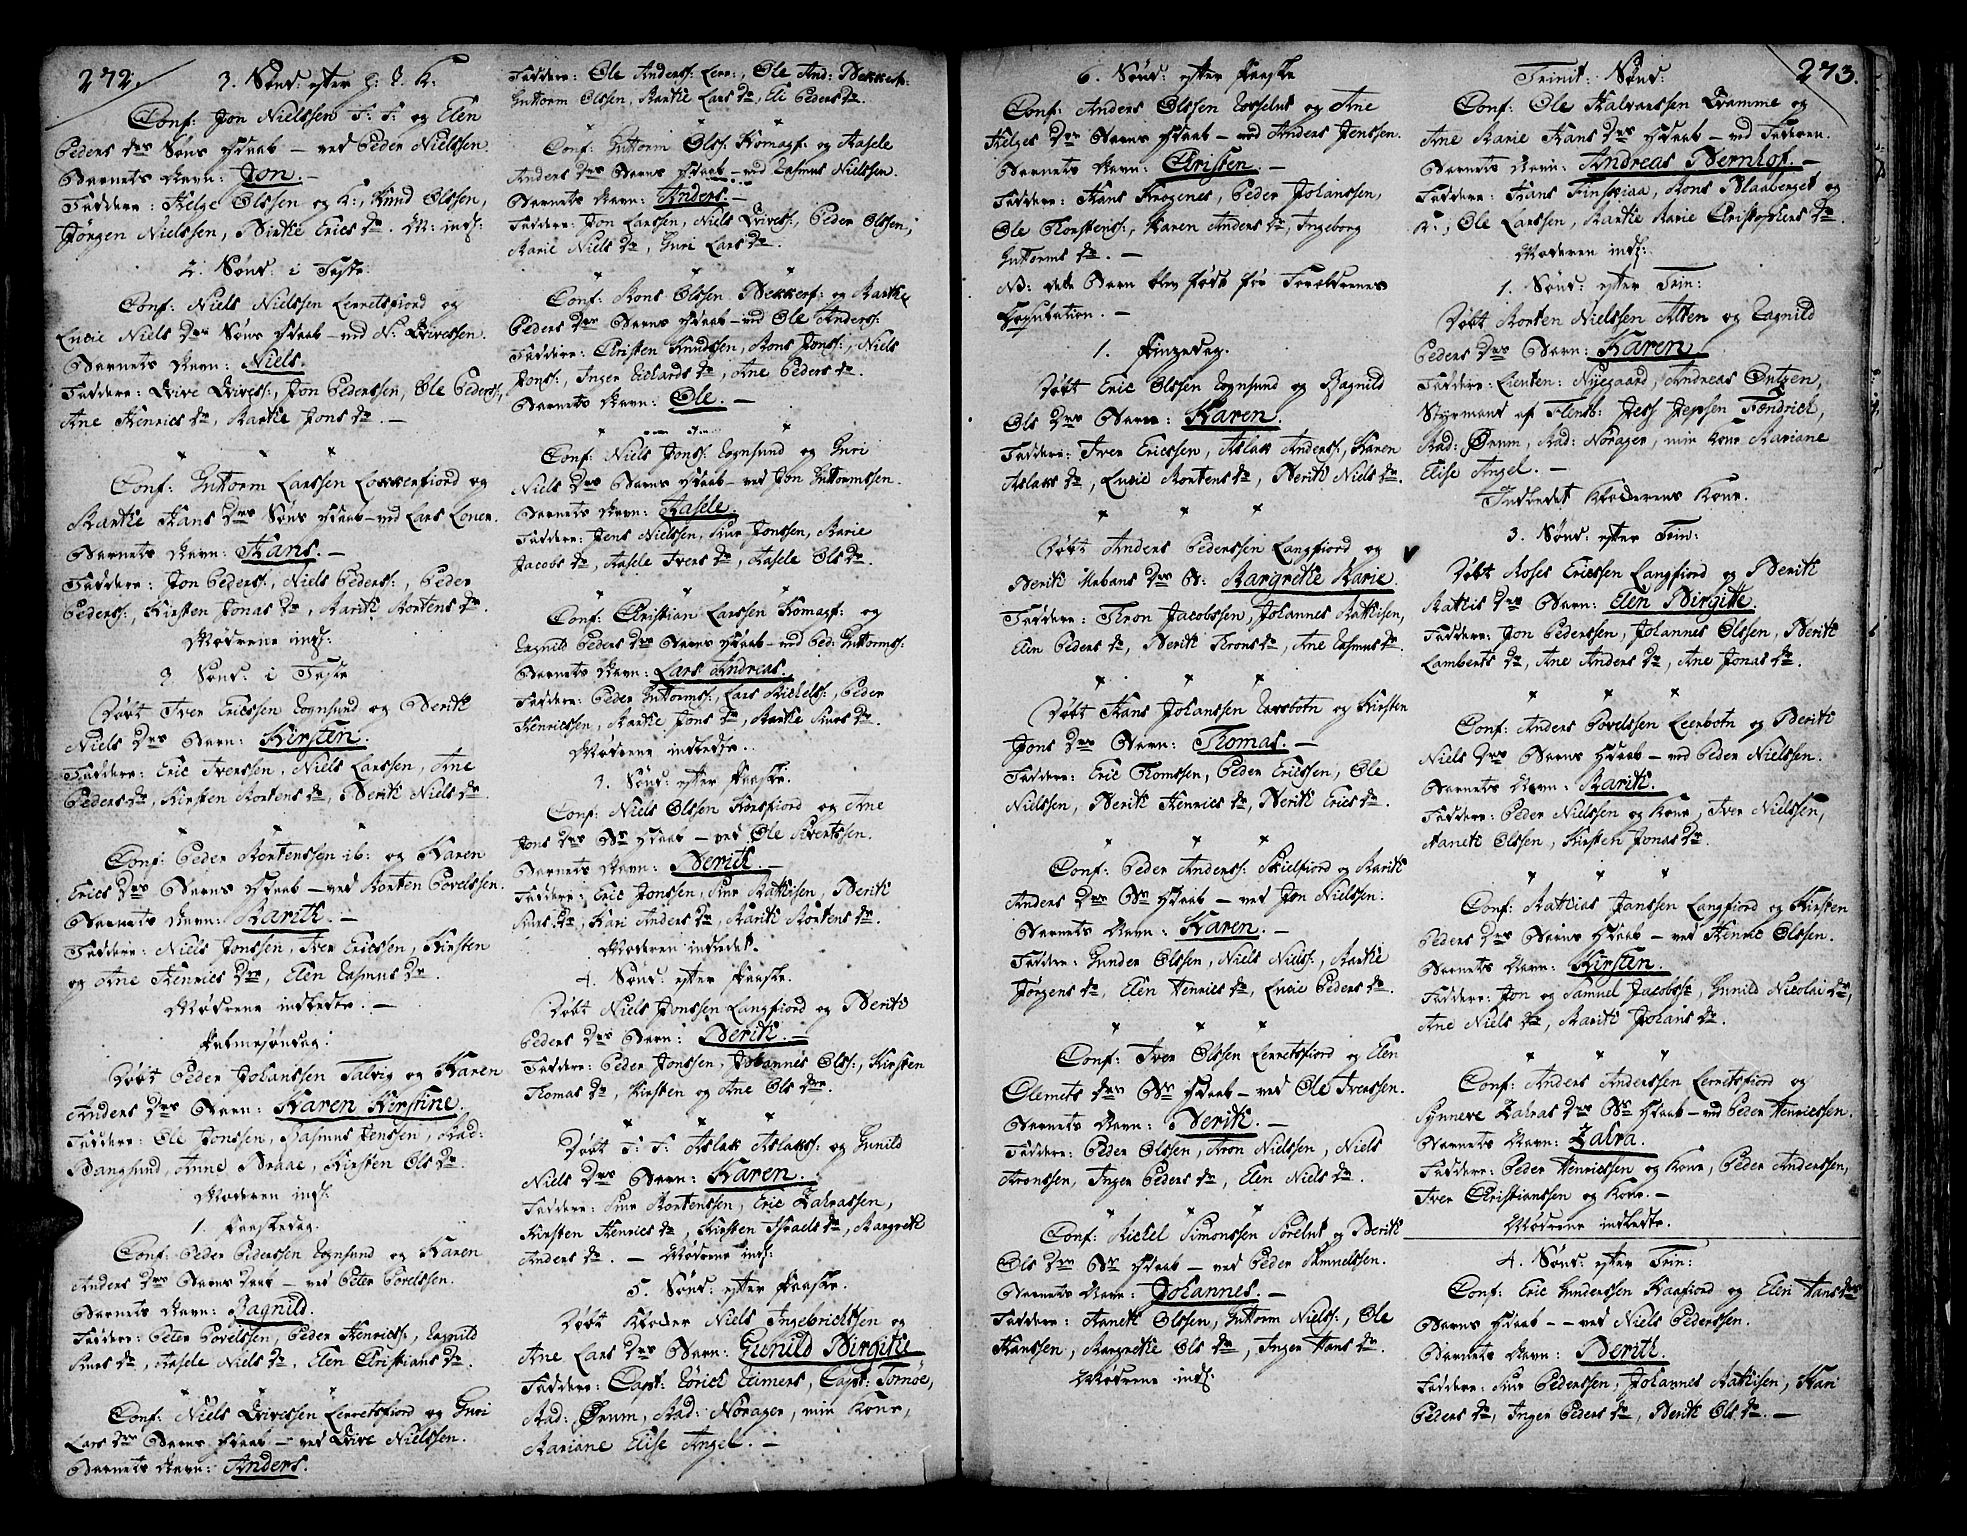 272.
3. Sønd: efter H. 3 K:
Conf: Jon Nielssen T: F: og Elen
Peders Drs Søns hdaab – ved Peder Nielssen.
Barnets Navn: Jon. –
Faddere: Helge Olssen og K:, Knud Olssen,
Jørgen Nielssen, Birthe Erics Dr. M: indl:
2. Sønd: i Faste.
Conf: Niels Nielssen Lerretsfiord og
Lucie Niels Drs Søns hdaab – ved N: Qvivessen.
Barnets Navn: Niels.
Faddere: Qvive Qvivess:, Jon Pederssen, Ole Peders:,
Ane Henrics Dr, Marthe Jons Dr. –
Conf: Guttorm Larssen Lokkerfiord og
Marthe Hans Drs Søns hdaab – ved Lars
Barnets Navn: Hans. –
Faddere: Jon Peders:, Niels Peders:, Peder
Peders:, Kirsten Jonas Dr, Marith Mortens Dr.
Mødrene indl:
3 Sønd: i Faste
Døbt Iver Ericssen Rognsund og Berith
Niels Drs Barn: Kirsten.
Faddere: Eric Iverssen, Niels Larssen, Ane
Peders Dr, Kirsten Mortens Dr, Berith Niels Dr.
Conf: Peder Mortenssen ib: og Karen
Erics Drs Barns hdaab – ved Morten Povelssen.
Barnets Navn: Marith. –
Faddere: Niels Jonssen, Iver Ericssen, Kirsten
og Ane Henrics Drs, Elen Rasmus Dr.
Mødrene indledte. –
Palmesøndag:
Døbt Peder Johanssen Talvig og Karen
Anders Drs Barn: Karen Kirstine.
Faddere: Ole Jonssen, Rasmus Jenssen, Mad:
Bangsund, Anne Braae, Kirsten Ols Dr.
Moderen indl:
1. Paaskedag.
Conf: Peder Pederssen Rognsund og Karen
Anders Drs Barns Daab – ved Peter Povelssen.
Barnets Navn: Ragnild.
Faddere: Peter Povelssen, Peder Henricss:, Ragnild
Dr, Aasele Niels Dr, Elen Christians Dr.
Conf: Niels Qvivessen Lerretsfiord og Guri
Lars Drs Barns hdaab – ved Qvive Nielssen.
Barnets Navn: Anders.
Faddere: Ole Anderss:, Ole And:
Guttorm Olssen, Marthe Lars Dr, Eli Peders Dr.
Conf: Guttorm Olss: Komagf: og Aasele
Anders Drs Barns hdaab – ved Rasmus Nielssen.
Barnets Navn: Anders. –
Faddere: Jon Larssen, Niels Qvivess:, Peder Olssen,
Marie Niels Dr, Guri Lars Dr.
Conf: Mons Olssen Bekkerf: og Marthe
Peders Drs Barns hdaab – ved Ole Anders:
Faddere: Christen Knudssen, Mons Jonss:, Niels
Jonss:, Inger Richards Dr, Ane Peders Dr.
Barnets Navn: Ole. –
Conf: Niels Jonss: Rognsund og Guri
Niels Drs Barns hdaab – ved Jon Guttormssen.
Barnets Navn: Aasele.
Faddere: Jens Nielssen, Siur Jonssen, Marie
Jacobs Dr, Aasele Ivers Dr, Aasele Ols Dr.
Conf: Christian Larssen Komagf: og
Ragnild Peders Drs Barns hdaab – ved Ped: Guttormss:
Barnets Navn: Lars Andreas.
Faddere: Peder Guttormss:, Lars Michelss:, Peder
Henricssen, Marthe Jons Dr, Marthe Siurs Dr.
Mødrene indledte.
3. Sønd: efter Paaske.
Conf: Niels Olssen Korsfiord og Ane
Jons Drs Bs hdaab – ved Ole Sivertssen.
Barnets Navn: Berith. –
Faddere: Eric Jonssen, Siur Mathisen, Berith
Siurs Dr, Kari Anders Dr, Marith Mortens Dr.
Moderen indledet.
4. Sønd: efter Paaske.
Døbt Niels Jonssen Langfiord og Berith
Peders Drs Barn: Berith. –
Faddere: Peder Jonssen, Johannes Olss:, Kirsten
Thomas Dr, Kirsten og Ane Ols Drs.
Døbt T: F: Aslak Aslakss: og Gunild
Niels Drs Barn: Karen. –
Faddere: Siur Mortenssen, Eric Zakrassen,
Kirsten Henrics Dr, Kirsten Israels Dr, Margreth
Anders Dr. – Mødrene indl:
5. Sønd: efter Paaske.
Døbt Kloder Niels Ingebrichtsen og
Ane Lars Drs Barn: Gunild Birgithe
Faddere: Capt: Eörich Reimers, Capt: Tornøe,
Mad: Ørum, Mad: Norager, min Kone,
Mariane Elise Angel. –
6. Sønd: efter Paaske
Conf: Anders Olssen Rosselus og Ane
Helges Drs Barns hdaab – ved Anders Jenssen.
Barnets Navn: Christen. –
Faddere: Hans Krogenes, Peder Johanssen,
Ole Thorstenss:, Karen Anders Dr, Ingeborg
Guttorms Dr. –
NB: dette Barn blev født før Foreldrenes
Copulation. –
1. Pinzedag.
Døbt Eric Olssen Rognsund og Ragnild
Ols Drs Barn: Karen.
Faddere: Iver Ericssen, Aslak Anderss:, Karen
Aslaks Dr, Lucie Mortens Dr, Berith Niels Dr.
Døbt Anders Pederssen Langfiord og
Berith Urbans Drs B: Margrethe Marie.
Faddere: Thron Jacobssen, Johannes Mathisen,
Elen Peders Dr, Berith Throns Dr, Ane Rasmus Dr.
Døbt Hans Johanssen Rørsbotn og Kirsten
Jons Drs Barn: Thomas. –
Faddere: Eric Thomssen, Peder Ericssen, Ole
Nielssen, Berith Henrics Dr, Berith Erics Dr.
Conf: Peder Anderss: Skielfiord og Marith
Anders Drs Bs hdaab – ved Jon Nielssen.
Barnets Navn: Karen. –
Faddere: Gunder Olssen, Niels Nielss:, Marthe
Jørgens Dr, Elen Henrics Dr, Lucie Peders Dr.
Conf: Iver Olssen Lerretsfiord og Elen
Olemets Drs Bs hdaab – ved Ole Iverssen.
Barnets Navn: Berith. –
Faddere: Peder Olssen, Aron Nielssen, Niels
Aronssen, Inger Peders Dr, Elen Niels Dr.
Conf: Michel Simonssen og Berith
Ols Drs Bs hdaab – ved Peder Samuelssen.
Barnets Navn: Johannes. –
Faddere: Hanch Olssen, Guttorm Nielss:, Ole
Hanssen, Margrethe Ols Dr, Inger Hans Dr.
Mødrene indl:
273.
Trinit: Sønd:
Conf: Ole Halvarssen Qvamme og
Ane Marie Hans Drs hdaab – ved Faderen.
Barnets Navn: Andreas Bernhof. –
Faddere: Hans Finsviaa, Mons Blaaberget og
K:, Ole Larssen, Marthe Marie Christophers Dr.
Moderen indl:
1. Sønd: efter Trin:
Døbt Morten Nielssen Alten og Ragnild
Peders Drs Barn: Karen
Faddere: Lieuten: Nyegaard, Andreas Ontzen,
Styrmand af Flensb: Jess Jepsen Fendrich,
Mad: Ørum, Mad: Norager, min Kone Mariane
Elise Angel. –
Indledet Kloderens Kone.
3. Sønd: efter Trin:
Døbt Moses Ericssen Langfiord og Berith
Mathis Drs Barn: Elen Birgithe.
Faddere: Jon Pederssen, Johannes Olssen, Berith
Lamberts Dr, Ane Anders Dr, Ane Jonas Dr.
Conf: Anders Povelssen Leerbotn og Berith
Niels Drs Barns hdaab – ved Peder Nielssen.
Barnets Navn: Marith.
Faddere: Peder Nielssen og Kone, Iver Nielssen,
Hanch Olssen, Kirsten Jonas Dr.
Conf: Mathias Janssen Langfiord og Kirsten
Peders Drs Barns hdaab – ved Henric Olssen.
Barnets Navn: Kirsten.
Faddere: Jon og Samuel Jacobss:, Gunild Nicolai Dr,
Ane Niels Dr, Marith Johans Dr.
Conf: Anders Anderssen Lerretsfiord og
Synneve Zakras Drs Bs hdaab – ved Peder Henricssen.
Barnets Navn: Zakra.
Faddere: Peder Henricssen og Kone, Peder Anderssen,
Iver Christianssen og Kone. –
Mødrene indledte.
4. Sønd: efter Trin:
Conf: Eric Gunderssen Kaafiord og Elen Hans Drs
Barns hdaab – – ved Niels Pederssen.
Barnets Navn: Berith.
Faddere: Siur Pederssen, Johannes Mathisen, Kari
Peders Dr, Inger Peders Dr, Berith Ols Dr. –